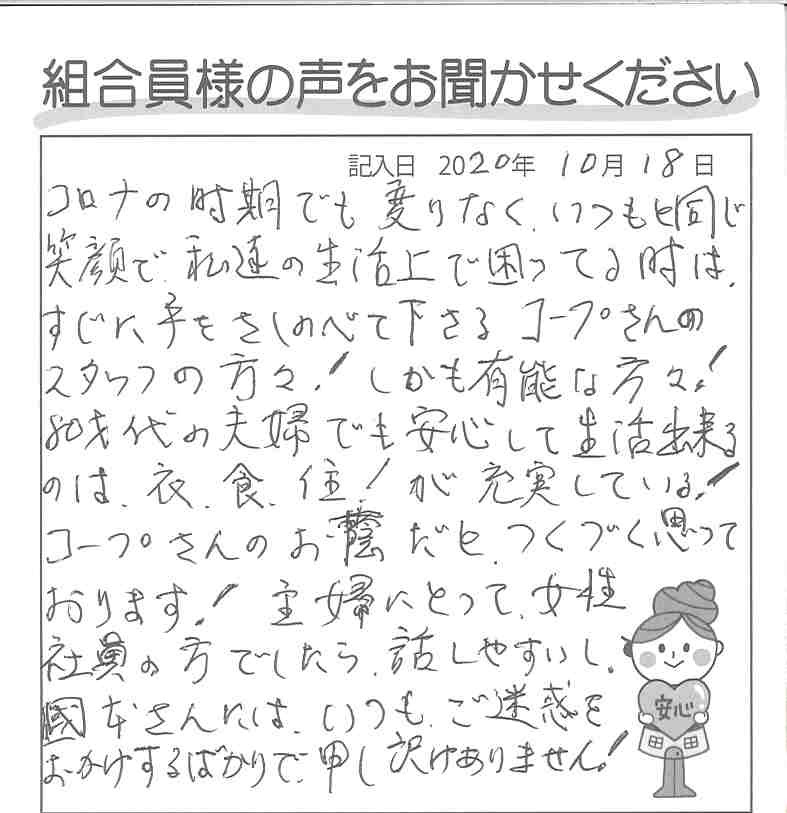 組合員様の声をお聞かせください
記入日 2020年 10月 18日
コロナの時期でも変りなく、いつもと同じ
笑顔で、私達の生活上で困ってる時は、
すじに、手をさしのべて下さる コープさんの
スタッフの方々！しかも有能な方々！
80才代の夫婦でも安心して生活出来る
のは、衣、食、住！が充実している！
コープさんのお蔭だと、つくづく思って
おります！主婦にとって、女性
社員の方でしたら、話しやすいし、
國本さんには、いつも、ご迷惑を
おかけするばかりで、申し訳けありません！
安心